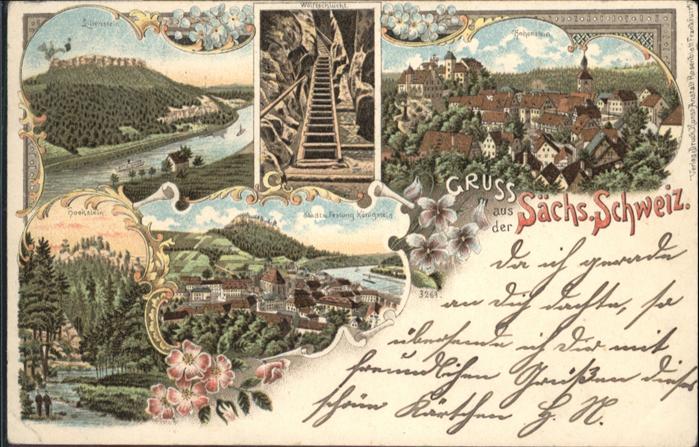 Lilienstein
Wolfsschlucht.
Hohnstein.
Hockstein.
Stadt u. Festung Königstein
GRUSS
aus
der
Sächs. Schweiz.
3261.
Da ich gerade
an Dich dachte, so
übersende ich Dir mit
freundlichen Grüßen dieses
schöne Kärtchen H. N.